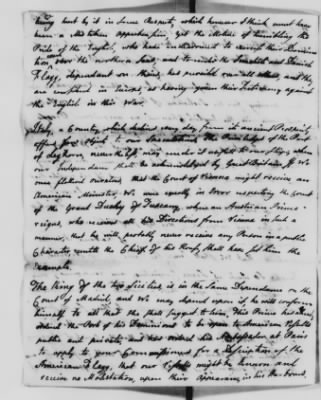 being hurt by it in some Respects, which however I think must have
been a mistaken apprehension, yet the Motive of humbling the
Pride of the English, who have endeavoured to exercise their Dominion
over the northern Nations, and to render the Danish
Flagg, dependant on theirs, has prevailed over all, and they
are considered in Europe, as having given their Testimony against
the English in this War.
Italy, a Country, which declines every day, from its ancient Prosperity
offers few objects
of Leghorn, nevertheless, may render it useful to our ships, when
our Independance shall be acknowledged by Great Britain. if We
once flattered ourselves, that the Court of Vienna might receive an
American Minister, We were equally in Error respecting the Court
of the Grand Dutchy of Tuscany, where an Austrian Prince
reigns, who receives all his Directions from Vienna in such a
manner, that he will probably never receive any Person in a public
Character, untill the Chief of his House, shall have set him the
Example.
The King of the two Sicilies is in the same Dependance on the
Court of Madrid, and We may depend upon it, he will conform
himself to all that she shall suggest to him. This Prince has
ordered the Ports of his Dominions to be open to American Vessells
public and private, and has ordered his Ambassador at Paris
to apply to your Commissioners for a Description of the
American Flagg, that our Vessells might be known and
receive no Molestation, upon their Appearance in his Harbours.